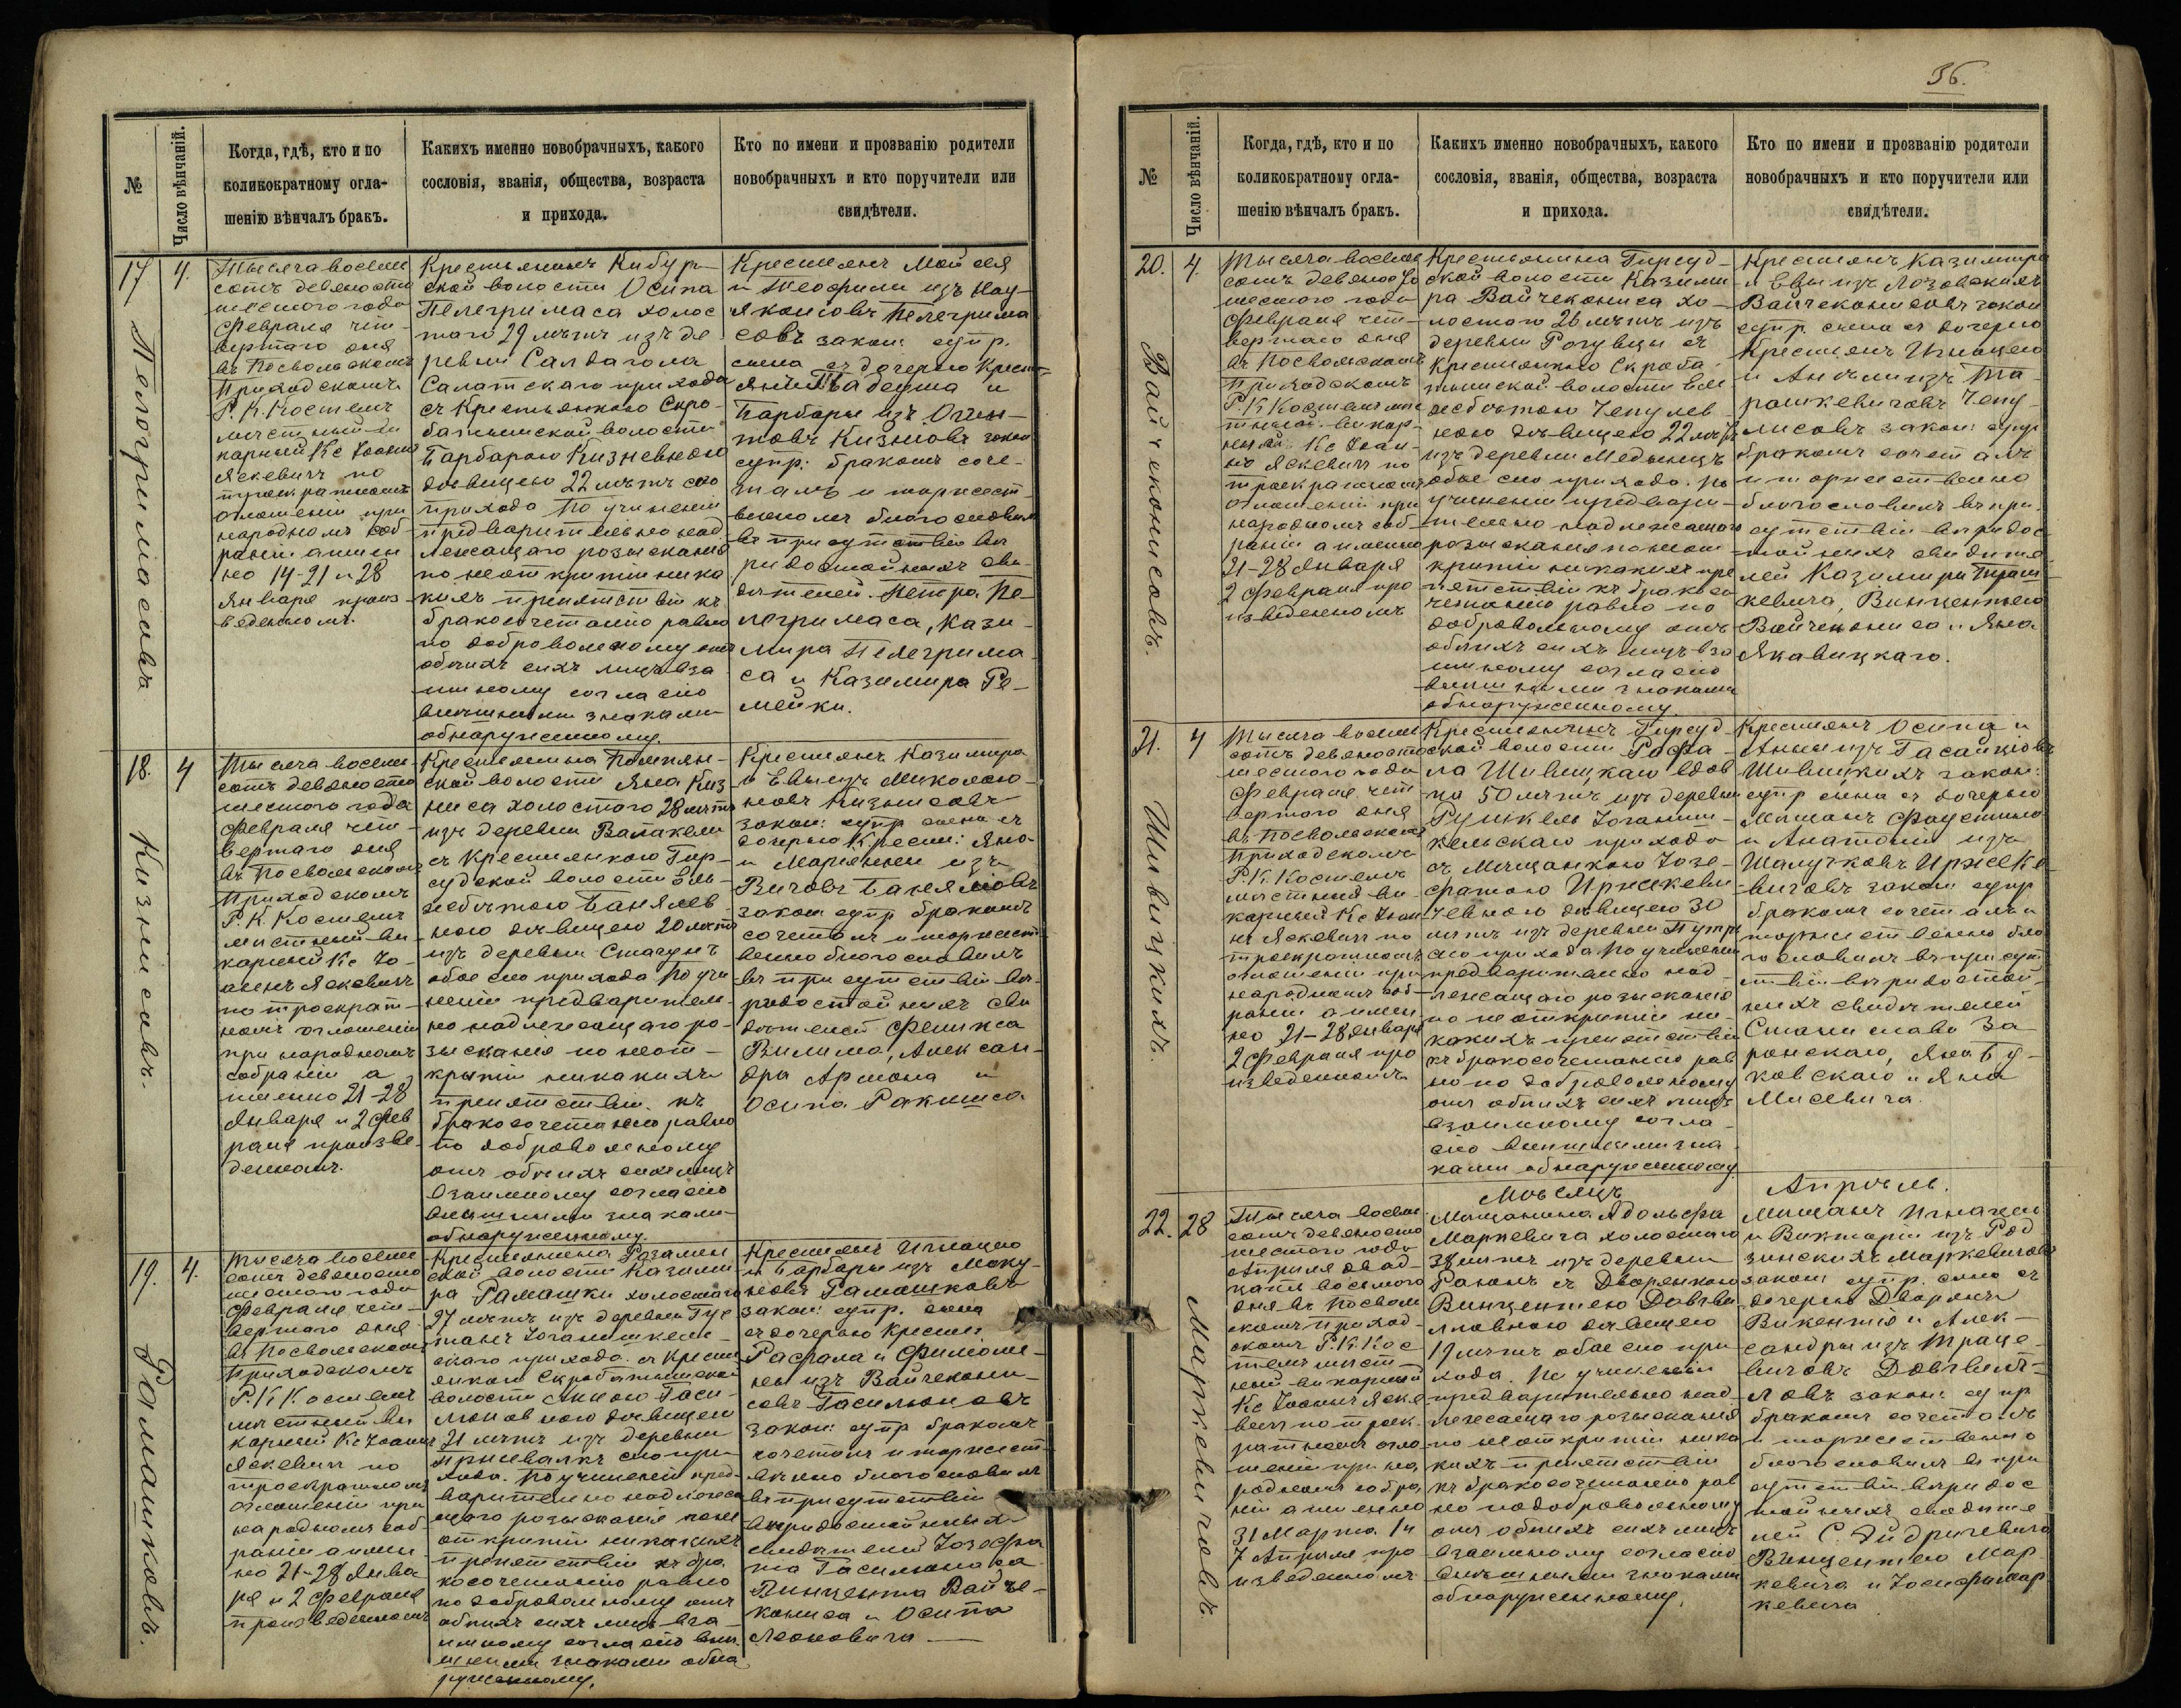 №
Число вѣнчаній.
Когда, гдѣ, кто и по
коликократному огла-
шенію вѣнчалъ бракъ.
Какихъ именно новобрачныхъ, какого
сословія, званія, общества, возраста
и прихода.
Кто по имени и прозванію родители
новобрачныхъ и кто поручители или
свидѣтели.
17
4.
Пелегримасовъ
Тысяча восем
сотъ девяносто
шестого года
Февраля чет-
вертаго дня
въ Посвольскомъ
Приходскомъ
Р. К. Костелѣ
мѣстный ви
карный Кс Іоаннъ
Яскевичъ по
троекратномъ
оглашеніи при
народномъ соб-
раніи а имен
но 14-21 и 28
Января произ
веденномъ.
Крестьянинъ Кибур-
ской волости Осипа
Пелегримаса холос
таго 29 лѣтъ изъ де
ревни Салдагола
Салатскаго прихода
съ Крестьянкою Скро-
батышской волости
Барбарою Кизневною
дѣвицею 22 лѣтъ сего
прихода По учиненіи
предварительно над
лежащаго розысканія
по неоткрытіи ника
кихъ препятствій къ
бракосочетанію равно
по добровольному отъ
обоихъ сихъ лицъ вза
имному согласію
внѣшними знаками
обнаруженному.
Крестьянъ Мойсея
и Теофили изъ Нау-
якоисовъ Пелегрима
совъ закон: супр.
сына съ дочерью Крест-
янъ Тадеуша и
Барбары изъ Огин-
товъ Кизисовъ закон
супр: бракомъ соче-
талъ и торжест-
венномъ благословилъ
въ присутствіи вѣ
ридостойныхъ сви-
дѣтелей. Петра Пе-
легримаса, Кази-
мира Пелегрима
са и Казимира Ре-
мейки.
18
4
Кизнисовъ.
Тысяча восем-
сотъ девяносто
шестого года
Февраля чет-
вертаго дня
въ Посвольскомъ
Приходскомъ
Р. К. Костелѣ
мѣстный ви
карный Кс Іо-
аннъ Яскевичъ
по троекрат-
номъ оглашеніи
при народномъ
собраніи а
именно 21-28
Января и 2 Фев
раля произве-
денномъ.
Крестьянина Помпян-
ской волости Яна Киз
ниса холостого 28 лѣтъ
изъ деревни Валакели
съ Крестьянкою Гир-
судской волости Эль-
жбѣтою Банялев
ною дѣвицею 20 лѣтъ
изъ деревни Стачунъ
обое сего прихода По учи
неніи предваритель-
но надлежащаго ро-
зысканія по неот-
крытіи никакихъ
препятствій къ
бракосочетанію равно
по добровольному
отъ обоихъ сихъ лицъ
взаимному согласію
внѣшними знаками
обнаруженному.
Крестьянъ Казимира
и Евы изъ Миколаю-
новъ Кизнисовъ
закон: супр сына съ
дочерью Крест: Яна
и Маріянны изъ
Вичовъ Банялисовъ
закон супр бракомъ
сочеталъ и торжест-
венно благословилъ
въ присутствіи вѣ-
ридостойныхъ сви
дѣтелей Феликса
Вилима, Алексан-
дра Армона и
Осипа Ракиша
19.
4.
Рамашковъ.
Тысяча восем
сотъ девяносто
шестого года
Февраля чет-
вертаго дня
въ Посвольскомъ
Приходскомъ
Р. К. Костелѣ
мѣстный ви
карный Кс Іоаннъ
Яскевичъ по
троекратномъ
оглашеніи при
народномъ соб-
раніи а имен
но 21-28 Янва
ря и 2 Февраля
произведенномъ
Крестьянина Розалин
ской волости Казими
ра Рамашки холостаго
27 лѣтъ изъ деревни Гус
танъ Іоганишкель-
скаго прихода. съ Крестья
янкою Скробатышской
волости Анною Гаси-
люновною дѣвицею
21 лѣтъ изъ деревни
Приевалкъ сего при
хода. По учиненіи пред-
варительно надлежа
щаго розысканія по не
открытіи никакихъ
препятствій къ бра
косочетанію равно
по добровольному отъ
обоихъ сихъ лицъ вза
имному согласію внѣ
шними знаками обна
руженному.
Крестьянъ Игнацего
и Барбары изъ Моку-
новъ Рамашковъ
закон: супр. сына
съ дочерью Крестья:
Рафала и Филоме-
ны изъ Вайчекони-
совъ Гасилюновъ
закон: супр бракомъ
сочеталъ и торжест-
венно благословилъ
въ присутствіи
вѣридостойныхъ
свидѣтелей Іозефа
та Гасилюнаса
Винцента Вайче-
кониса и Осипа
Леоновича
36.
№
Число вѣнчаній.
Когда, гдѣ, кто и по
коликократному огла-
шенію вѣнчалъ бракъ.
Какихъ именно новобрачныхъ, какого
сословія, званія, общества, возраста
и прихода.
Кто по имени и прозванію родители
новобрачныхъ и кто поручители или
свидѣтели.
20.
4.
Вайчеконисовъ.
Тысяча восем
сотъ девяносто
шестого года
Февраля чет-
вертаго дня
въ Посвольскомъ
Приходскомъ
Р. К Костелѣ мѣс
тный викар-
ный Кс Іоан-
нъ Яскевичъ по
троекратномъ
оглашеніи при
народномъ соб-
раніи а именно
21-28 Января
2 Февраля про
изведенномъ
Крестьянина Гирсуд-
ской волости Казими
ра Вайчекониса хо-
лостого 26 лѣтъ изъ
деревни Рогувцы съ
Крестьянкою Скроба
тышской волости Эль
жбѣтою Чепулев
ною дѣвицею 22 лѣтъ
изъ деревни Медынцъ
обое сего прихода. По
учиненіи предвари-
тельно надлежащаго
розысканія по неот
крытіи никакихъ пре
пятствій къ бракосо
четанію равно по
добровольному отъ
обоихъ сихъ лицъ вза
имному согласію
внѣшними знаками
обнаруженному
Крестьянъ Казимира
и Евы изъ Лозовскихъ
Вайчеконисовъ закон
супр. сына съ дочерью
Крестьянъ Игнацего
и Анели изъ Та-
рашкевичовъ Чепу
лисовъ закон: супр
бракомъ сочеталъ
и торжественно
благословилъ въ при
сутствіи вѣридос
тойныхъ свидѣте
лей Казимира Траш
кевича, Винцентего
Вайчекониса и Яна
Якавицкаго.
21.
4
Шивицкихъ.
Тысяча восем
сотъ девяносто
шестого года
Февраля чет
вертаго дня
въ Посвольскомъ
Приходскомъ
Р. К. Костелѣ
мѣстный ви
карный Кс Іоан
нъ Яскевичъ по
троекратномъ
оглашеніи при
народномъ соб-
раніи а имен
но 21-28 Января
2 Февраля про
изведенномъ
Крестьянинъ Гирсуд
ской волости Рафа-
ла Шивицкаго вдов
ца 50 лѣтъ изъ деревни
Рушкель Іогани-
кельскаго прихода
съ Мѣщанкою Іозе-
фатою Иржикеви
чевною дѣвицею 30
лѣтъ изъ деревни Путр
сего прихода По учиненіи
предварительно над-
лежащаго розысканія
по неоткрытіи ни-
какихъ препятствій
къ бракосочетанію рав
но по добровольному
отъ обоихъ сихъ лицъ
взаимному согла-
сію внѣшними зна
ками обнаруженному
Крестьянъ Осипа и
Анны изъ Гасайтисовъ
Шивицкихъ закон:
супр сына съ дочерью
Мѣщанъ Фаустина
и Анатоліи изъ
Шалучковъ Иржике
вичовъ закон супр
бракомъ сочеталъ и
торжественно бла
гословилъ въ присут
ствіи вѣридостой-
ныхъ свидѣтелей
Станислава За-
ронскаго, Яна Бу-
ковскаго и Яна
Мисевича.
Мѣсяцъ
Апрѣль.
22.
28
Маркевичовъ.
Тысяча восем
сотъ девяносто
шестого года
Апрѣля двад-
цать восьмого
дня въ Посволь
скомъ приход-
скомъ Р. К. Кос
телѣ мѣст-
ный викарный
Кс Іоаннъ Яске
вичъ по троек-
ратномъ огла
шеніи при на
родномъ собра
ніи а именно
31 Марта. 1 и
7 Апрѣля про
изведенномъ
Мѣщанина Адольфа
Маркевича холостого
38 лѣтъ изъ деревни
Раюнъ съ Дворянкою
Винцентею Довгвил
ловною дѣвицею
19 лѣтъ обое сего при
хода. По учиненіи
предварительно над
лежащаго розысканія
по неоткрытіи ника
кихъ препятствій
къ бракосочетанію рав
но по добровольному
отъ обоихъ сихъ лицъ
взаимному согласію
внѣшними знаками
обнаруженному.
Мѣщанъ Игнацего
и Викторіи изъ Род
зинскихъ Маркевичовъ
закон супр. сына съ
дочерью Дворянъ
Викентія и Алек-
сандры изъ Траце-
вичовъ Довгвил-
ловъ закон: супр
бракомъ сочеталъ
и торжественно
благословилъ въ при
сутствіи вѣридос
тойныхъ свидѣте
лей С. Эйдригевича
Винцентего Мар
кевича и Іосифа Мар
кевича